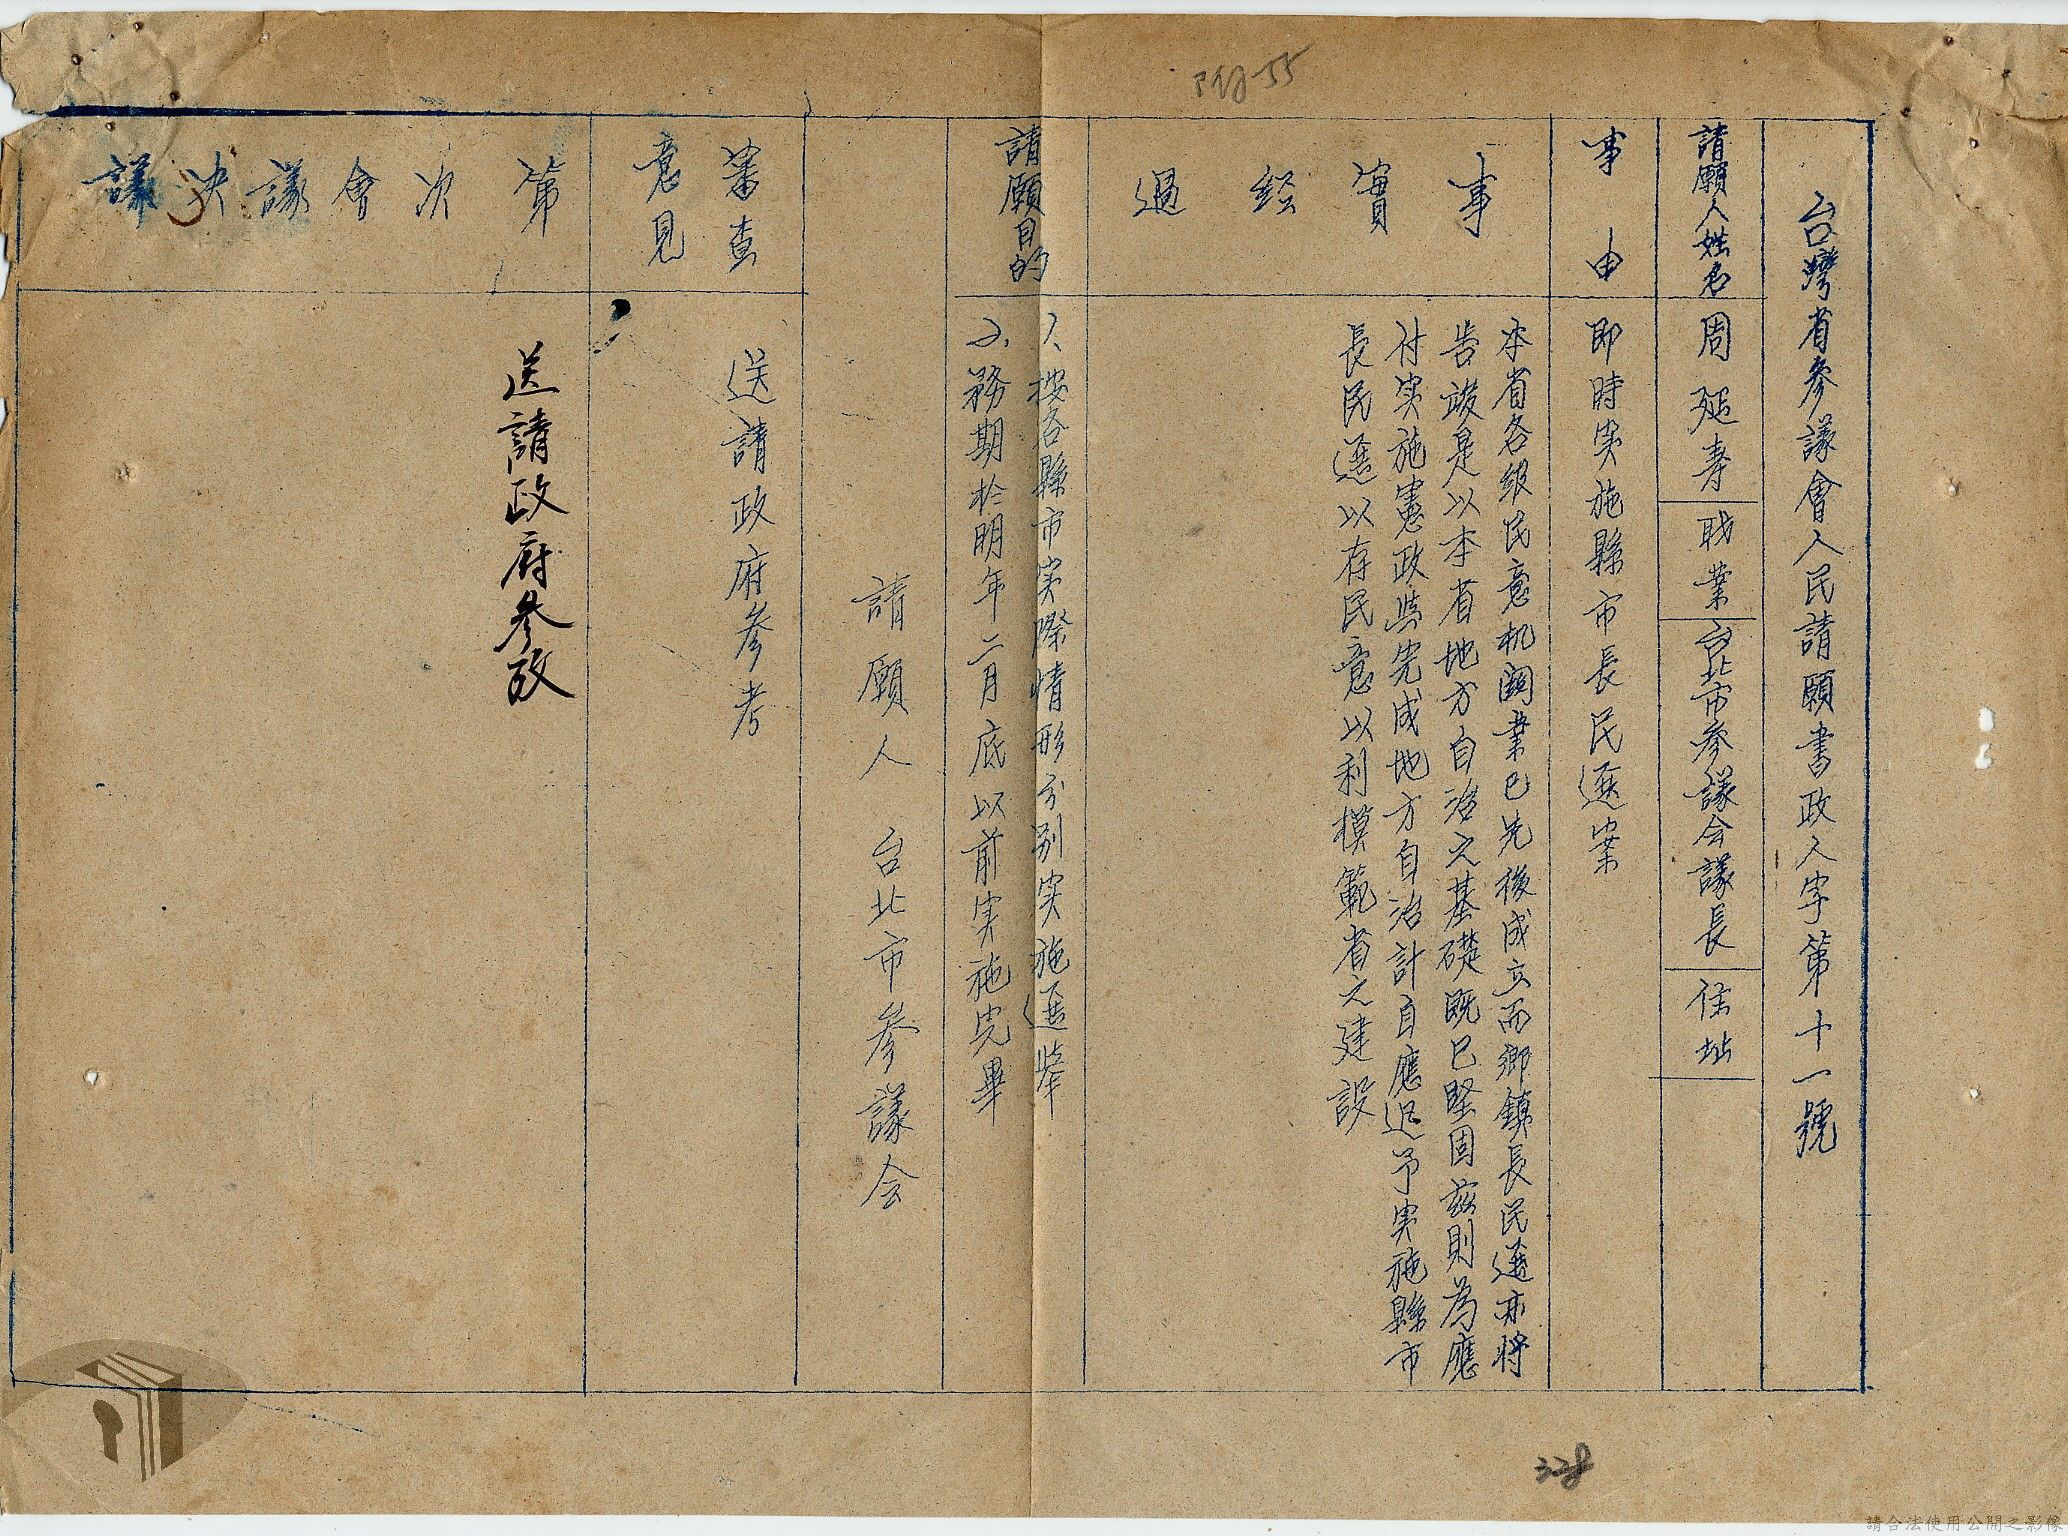 台灣省參議會人民請願書政人字第十一號
請願人姓名 周延寿 職業 台北市參議会議長 住址
事由 即時実施縣市長民選案
事實經過
本省各級民意机関業已先後成立而鄉鎮長民選亦将
告竣是以本省地方自治之基礎既已堅固茲則為應
付実施憲政与完成地方自治計自應迅予実施縣市
長民選以存民意以利模範省之建設
請願目的
1、按各縣市実際情形分別実施選挙
2、務期於明年二月底以前実施完畢
請願人 台北市參議会
審查意見 送請政府參考
第 次會議決議 送請政府參攷
55
328
請合法使用公開之影像